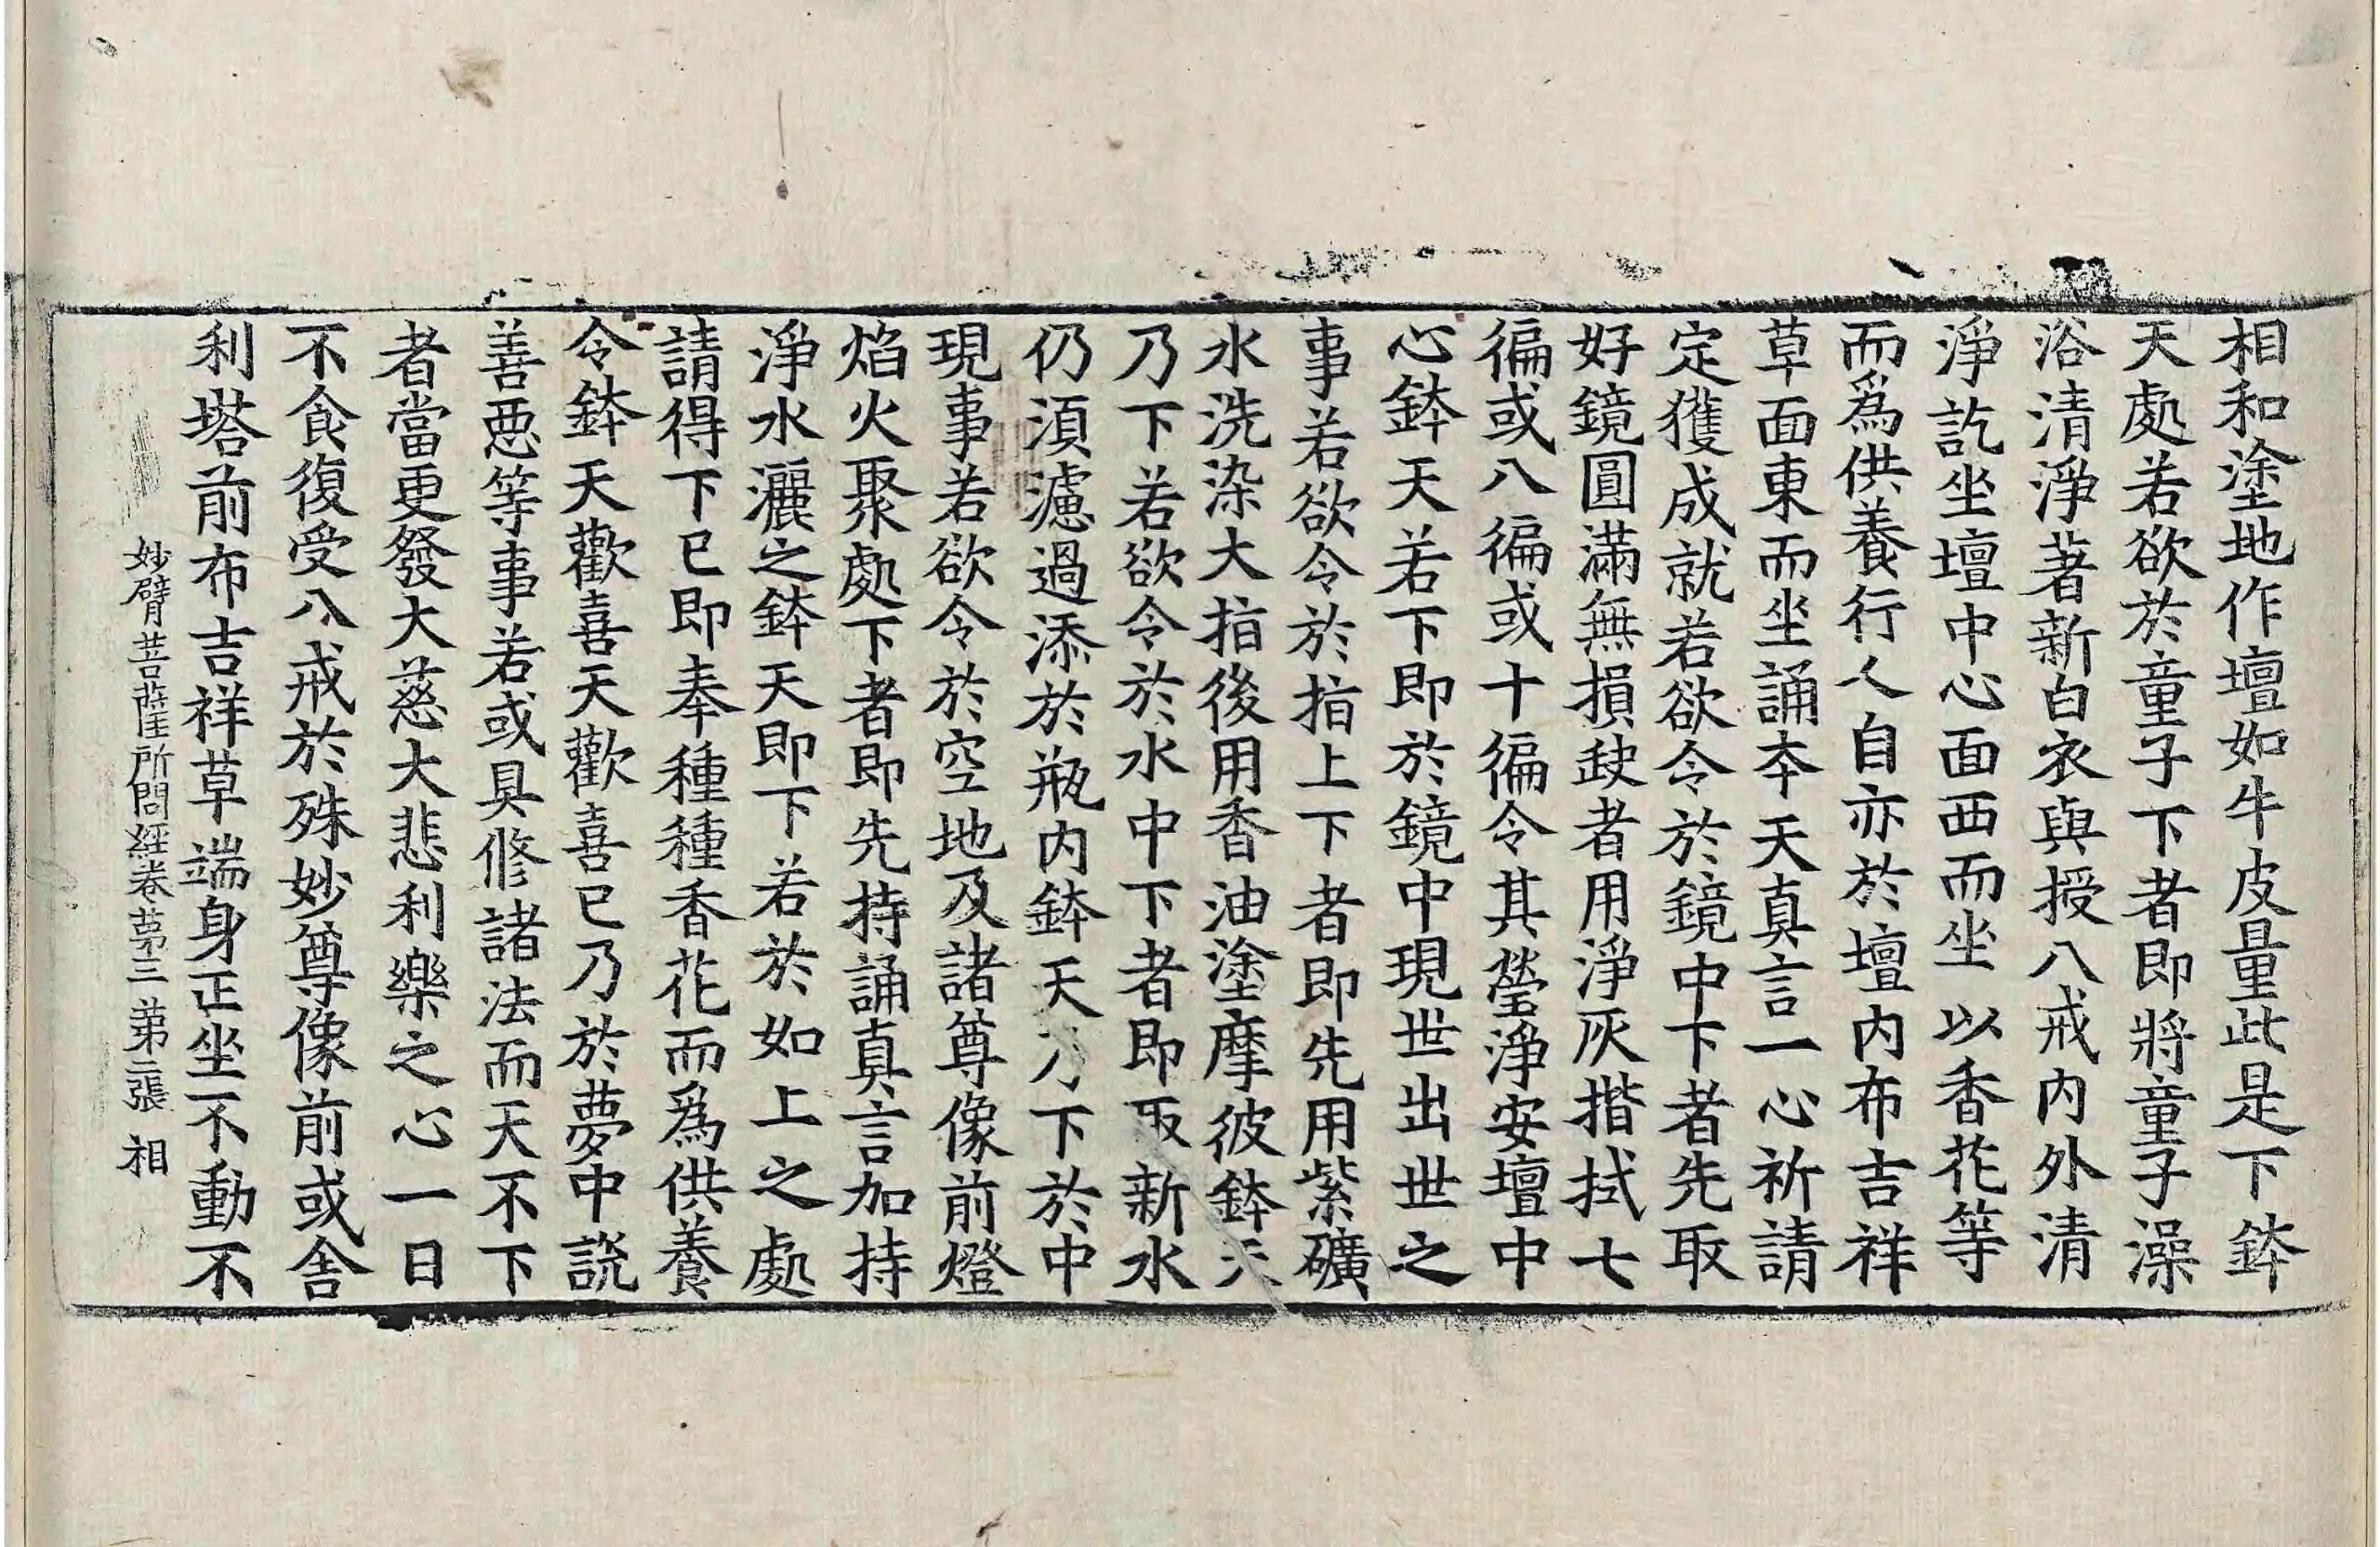 相和塗地作壇如牛皮量此是下鉢
天處若欲於童子下者即將童子澡
浴清淨著新白衣與授八戒內外清
淨訖坐壇中心面西而坐以香花等
而為供養行人自亦於壇內布吉祥
草面東而坐誦本天真言一心祈請
定獲成就若欲令於鏡中下者先取
好鏡圓滿無損缺者用淨灰揩拭七
徧或八徧或十徧令其瑩淨安壇中
心鉢天若下即於鏡中現世出世之
事若欲令於指上下者即先用紫礦
水洗染大指後用香油塗摩彼鉢天
乃下若欲令於水中下者即取新水
仍須濾過添於瓶內鉢天乃下於中
現事若欲令於空地及諸尊像前燈
焰火聚處下者即先持誦真言加持
淨水灑之鉢天即下若於如上之處
請得下已即奉種種香花而為供養
令鉢天歡喜天歡喜已乃於夢中說
善惡等事若或具修諸法而天不下
者當更發大慈大悲利樂之心一日
不食復受八戒於殊妙尊像前或舍
利塔前布吉祥草端身正坐不動不
妙臂菩薩所問經卷第三 第二張 相